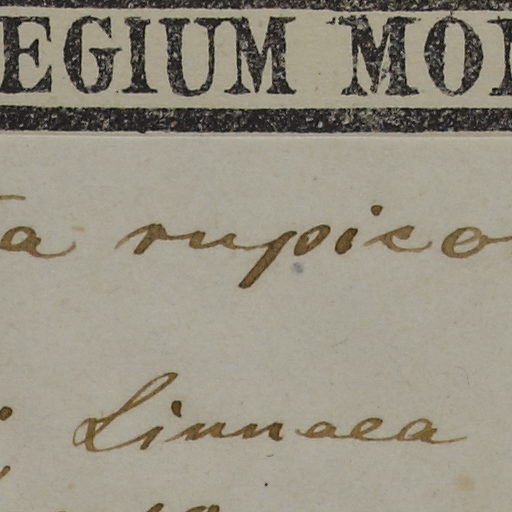 EGIUM MON
ta rupico
Linnaea